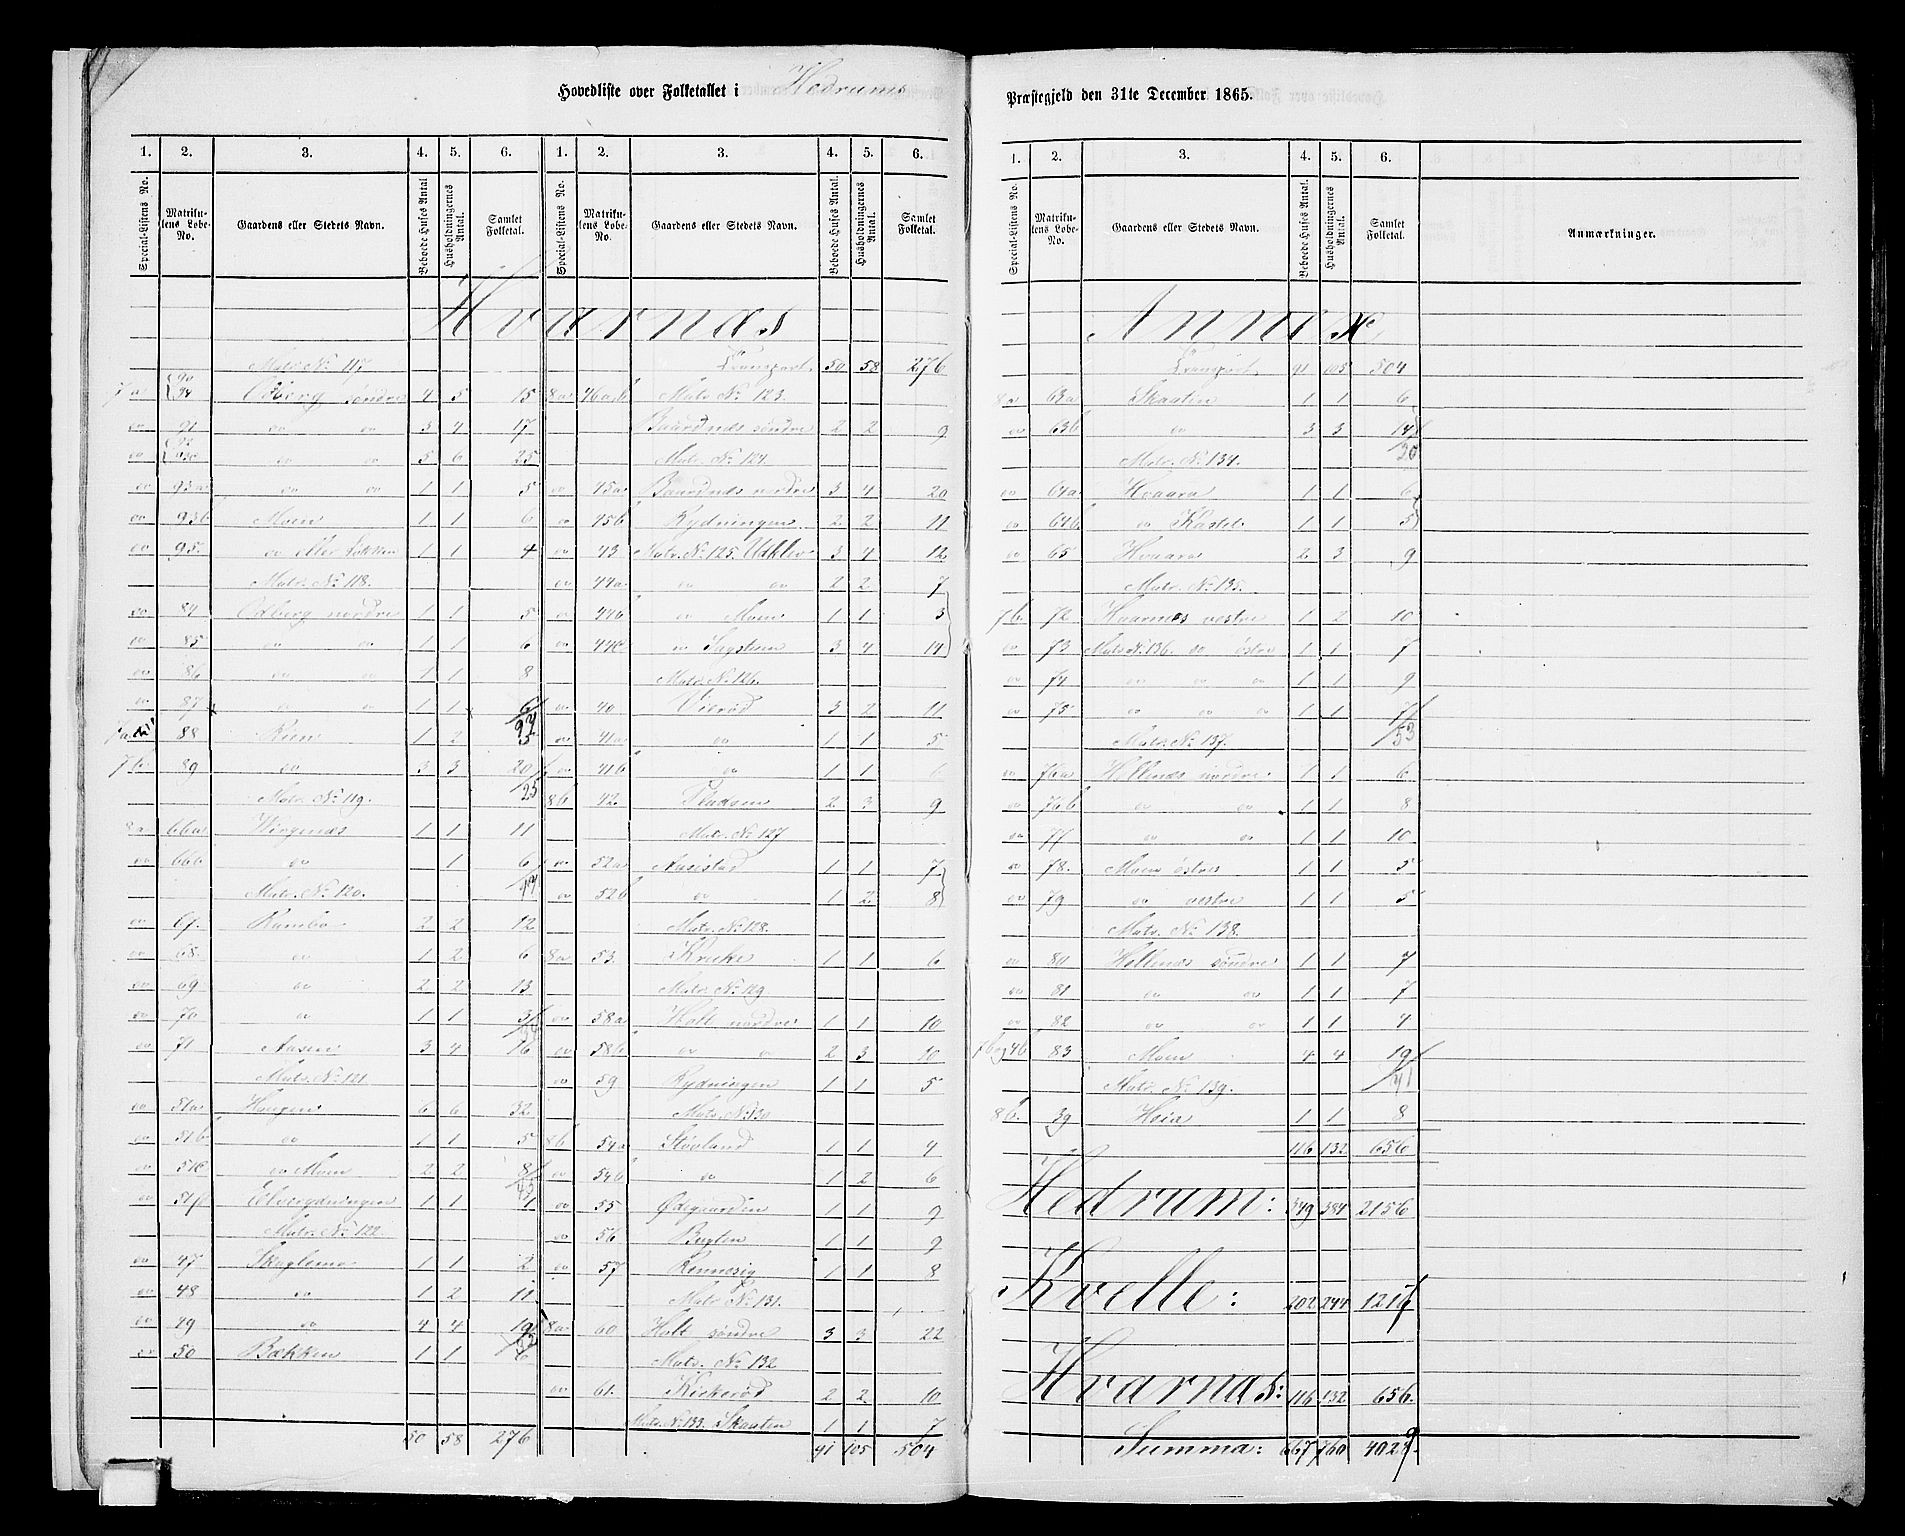 Hovedliste over Folketallet i Hedrums Præstegjeld den 31te December 1865.
1. 2. 3. 4. 5. 6. 1. 2. 3. 4. 5. 6.
Special-Listens No. Matrikulens Løbe-No. Gaardens eller Stedets Navn. Beboede Huses Antal Husholdningernes Antal. Samlet Folketal. Special-Listens No. Matrikulens Løbe-No. Gaardens eller Stedets Navn. Beboede Huses Antal. Husholdningernes Antal. Samlet Folketal.
Hvarnæs
Matr. No 117.
7a 90 94 Odberg søndre 4 5 15
" 91 " " 3 4 17
" 92 " " 5 6 25
" 93a " " 1 1 5
" 93b Moen 1 1 6
" 95. " eller Løkken 1 1 4
Matr. No 118.
" 84 Odberg nordre 1 1 5
" 85 " " 1 1 6
" 86 " " 1 1 8
" 87 " " 1 1 6
88 Roen 1 2 5
7b. 89 " 3 3 20
25
Matr. No 119.
8a 66a Virgenæs 1 1 11
" 66b " 1 6
Matr. No 120.
" 67. Rambo 2 2 12
" 68. " 1 2 6
" 69 " 2 2 13
" 70 " 1 1 3
" 71 Aasen 3 4 16
Matr. No 121.
" 51a Haugen 6 6 32
" 51b " 1 1 5
" 51c " Moen 2 2 8
" 1 1 1
Matr. No 122.
" 47 1 1 2
" 48 " 1 2 11
" 49 " 4 4 19
" 50 Bækken 1 1 6
50 58 276
Transport. 50 58 276
8a 46a,b Matr. No 123.
Baardnæs søndre 2 2 9
Matr. No 124.
" 45a Baardnæs nordre 3 4 20
" 45b Rydningen 2 2 11
" 43. Matr. No 125. Udklev 3 4 12
" 44a " " 2 2 7
" 44b " Moen 1 1 3
" 44c " 3 4 14
Matr. No 126.
" 40 Vierød 3 2 11
" 41a " 1 1 5
" 41b " 1 1 6
8b 42. Pladsen 2 3 9
Matr. No 127
" 52a 1 1 7
" 52b " 1 2 8
Matr. No 128.
8a 53. Kruke 1 1 6
Matr. No 129
" 58a Holt nordre 1 1 10
" 58b " " 2 3 10
" 59 Rydningen 1 1 5
Matr. No 130
8b 54a Støvland 1 1 4
" 54b " 1 2 6
" 55 Ødegaarden 1 1 9
" 56 Bugten 1 1 9
" 57 Rennesig 1 1 8
Matr. No 131.
8a 60 Holt søndre 3 3 22
Matr. No 132
" 61. Kiekerød 2 2 10
Matr. No 133. Skaaten 1 1 7
91 105 504
1. 2. 3. 4. 5. 6.
Special-Listens No. Matrikulens Løbe-No. Gaardens eller Stedets Navn. Beboede Huses Antal. Husholdningernes Antal. Samlet Folketal. Anmærkninger.
Annex
Transport. 91 105 504
8a 63a Skaaten 1 1 6
" 63b " 3 3 14
20
Matr. No 134.
" 64a Hvaara 1 1 6
" 64b " Kastet 1 1 5
" 65 Hvaara 2 3 9
Matr. No 135.
7b. 72 Hvarnes vestre 1 2 10
" 73 Matr. No 136. " østre 1 1 7
" 74 " " " 1 1 9
" 75 " " " 1 1 7
53
Matr. No 137.
" 76a Hellenæs nordre 1 1 6
" 76b " " 1 1 8
" 77 " " 1 1 10
" 78. Moen østre 1 1 5
" 79 " vestre 1 1 5
Matr. No 138.
" 80 Hellenæs søndre 1 1 7
" 81 " " 1 1 7
" 82 " " 1 1 4
83 Moen 4 4 19
41
Matr. No 139.
8b. 39 Heia 1 1 8
116 132 656
Hedrum: 349 384 2156
Kvelle: 202 244 1217
Hvarnæs: 116 132 656.
Summa: 667 760 4029.